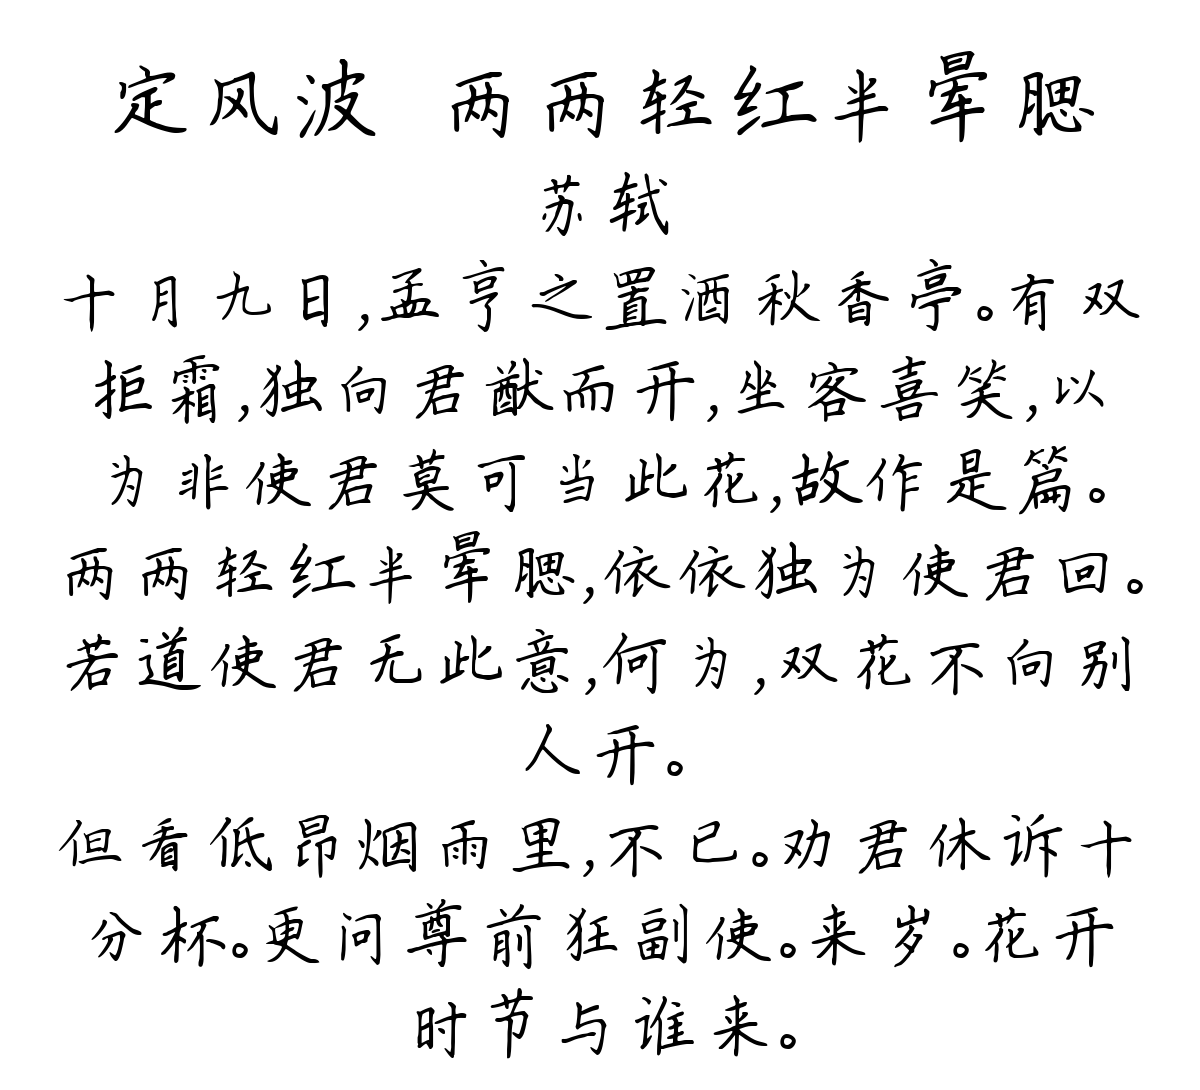 定风波 两两轻红半晕腮
苏轼
十月九日,孟亨之置酒秋香亭。有双
拒霜,独向君猷而开,坐客喜笑,以
为非使君莫可当此花,故作是篇。
两两轻红半晕腮,依依独为使君回。
若道使君无此意,何为,双花不向别
人开。
但看低昂烟雨里,不已。劝君休诉十
分杯。更问尊前狂副使。来岁。花开
时节与谁来。